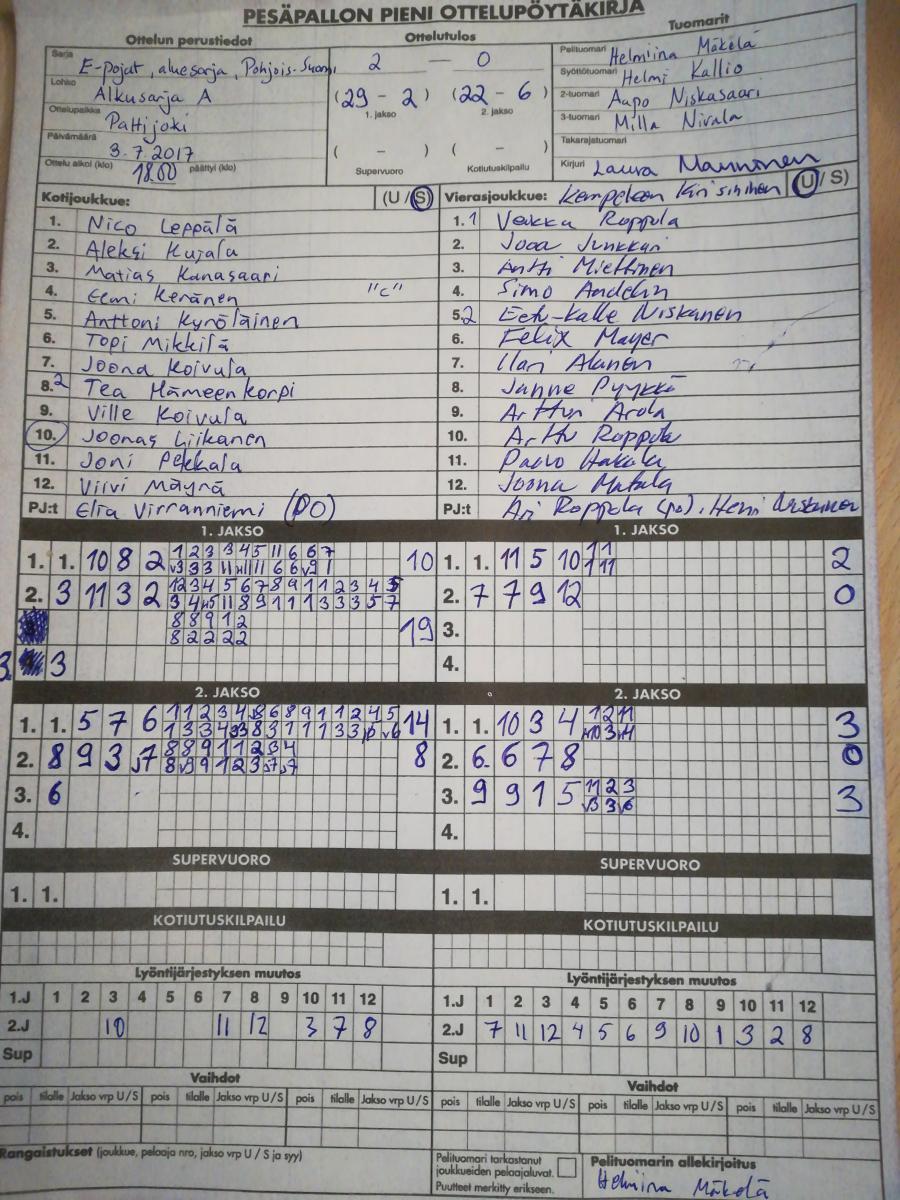 PESÄPALLON PIENI OTTELUPÖYTÄKIRJA
Ottelun perustiedot Ottelutulos Tuomarit
Sarja E-pojat, aluesarja, Pohjois-Suomi
Lohko Alkusarja A
Ottelupaikka Pattijoki
Päivämäärä 3.7.2017
Ottelu alkoi (klo) 18.00 päättyi (klo)
2 — 0
(29 - 2) (22 - 6)
1. jakso 2. jakso
( - ) ( - )
Supervuoro Kotiutuskilpailu
Pelituomari Helmiina Mäkelä
Syöttötuomari Helmi Kallio
2-tuomari Aapo Niskasaari
3-tuomari Milla Nivala
Takarajatuomari
Kirjuri Laura Mannonen
Kotijoukkue: (U / S)
1. Nico Leppälä
2. Aleksi Kujala
3. Matias Kanasaari
4. Eemi Keränen "c"
5. Anttoni Kyröläinen
6. Topi Mikkilä
7. Joona Koivula
8. 2 Tea Hämeenkorpi
9. Ville Koivula
10. Joonas Liikanen
11. Joni Pekkala
12. Viivi Mäyrä
PJ:t Elia Virranniemi (PO)
Vierasjoukkue: Kempeleen Kiri sininen (U / S)
1. 1 Veikka Roppola
2. Jooa Junkkari
3. Antti Miettinen
4. Simo Andelin
5. 2 Eetu-Kalle Niskanen
6. Felix Mayer
7. Ilari Alanen
8. Janne Pyykkä
9. Artturi Arola
10. Arttu Roppola
11. Paavo Hakala
12. Joona Matala
PJ:t Ari Roppola (po), Heni
1. JAKSO
1. 1. 10 8 2 1 2 3 3 4 5 11 6 6 7 10
2. 3 11 3 2 12 3 4 5 6 7 8 9 11 1 2 3 4 5
3 4 5 11 8 9 1 1 1 3 3 3 5 7
8 8 9 1 2
8 2 2 2 2 19
3. 3
1. JAKSO
1. 1. 11 5 10 1 1 2
2. 7 7 9 12 0
3.
4.
2. JAKSO
1. 1. 5 7 6 14
2. 8 9 3 7 8 8 9 1 1 2 3 4 8
3. 6
4.
2. JAKSO
1. 1. 10 3 4 1 2 11 3
2. 6. 6 7 8 0
3. 9 9 1 5 11 2 3 3
4.
SUPERVUORO
1. 1.
SUPERVUORO
1. 1.
KOTIUTUSKILPAILU
KOTIUTUSKILPAILU
Lyöntijärjestyksen muutos
1.J 1 2 3 4 5 6 7 8 9 10 11 12
2.J 10 11 12 3 7 8
Sup
Lyöntijärjestyksen muutos
1.J 1 2 3 4 5 6 7 8 9 10 11 12
2.J 7 11 12 4 5 6 9 10 1 3 2 8
Sup
Vaihdot
pois tilalle Jakso vrp U / S pois tilalle Jakso vrp U / S pois tilalle Jakso vrp U / S
Vaihdot
pois tilalle Jakso vrp U / S pois tilalle Jakso vrp U / S pois tilalle Jakso vrp U / S
Rangaistukset (joukkue, pelaaja nro, jakso vrp U / S ja syy)
Pelituomari tarkastanut
joukkueiden pelaajaluvat.
Puutteet merkitty erikseen.
Pelituomarin allekirjoitus
Helmiina Mäkelä